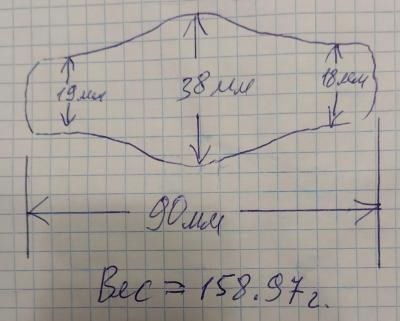 19мм
38мм
18мм
90мм
Вес = 158.97г.